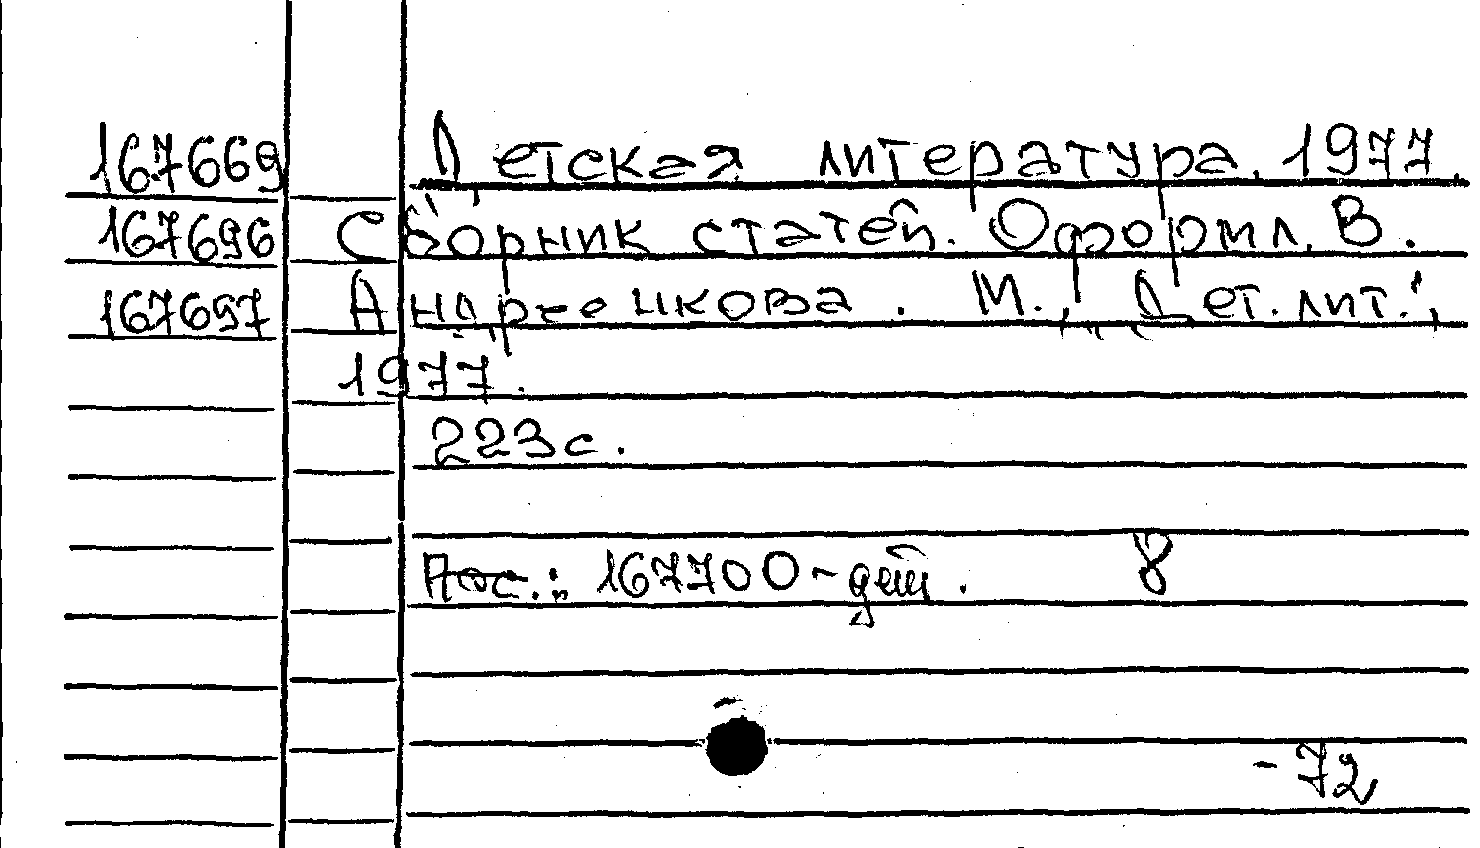 167669 Детская литература. 1977.
167696 Сборник статей. Оформл. В.
167697 Андреенкова. М., "Дет. лит.",
1977.
223 с.
Пос.: 167700-дет. 8
-72